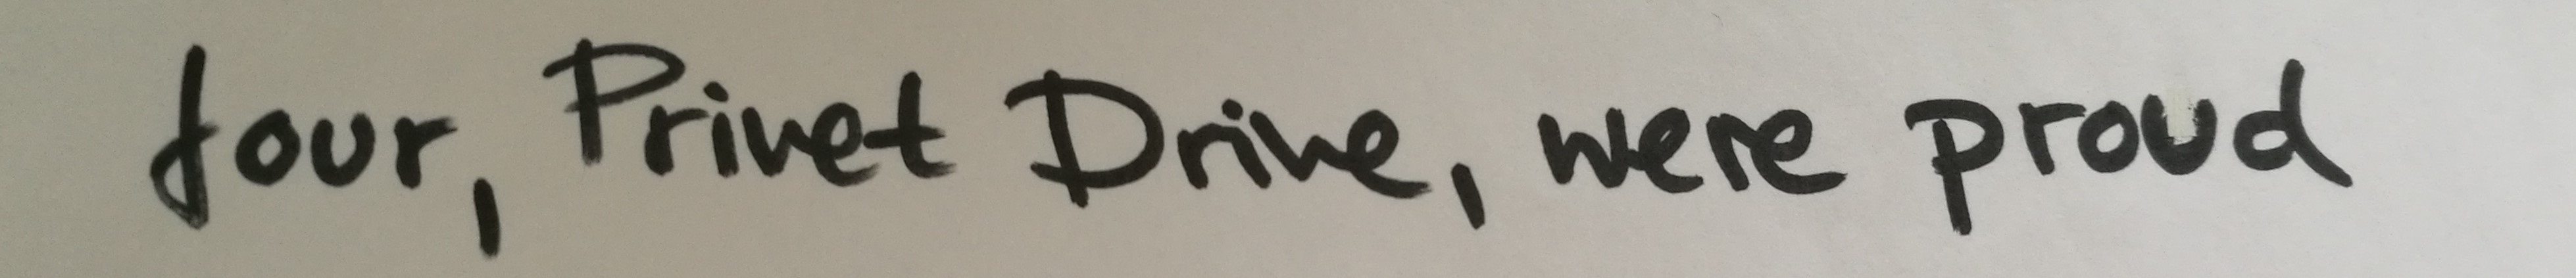 four, Privet Drive, were proud